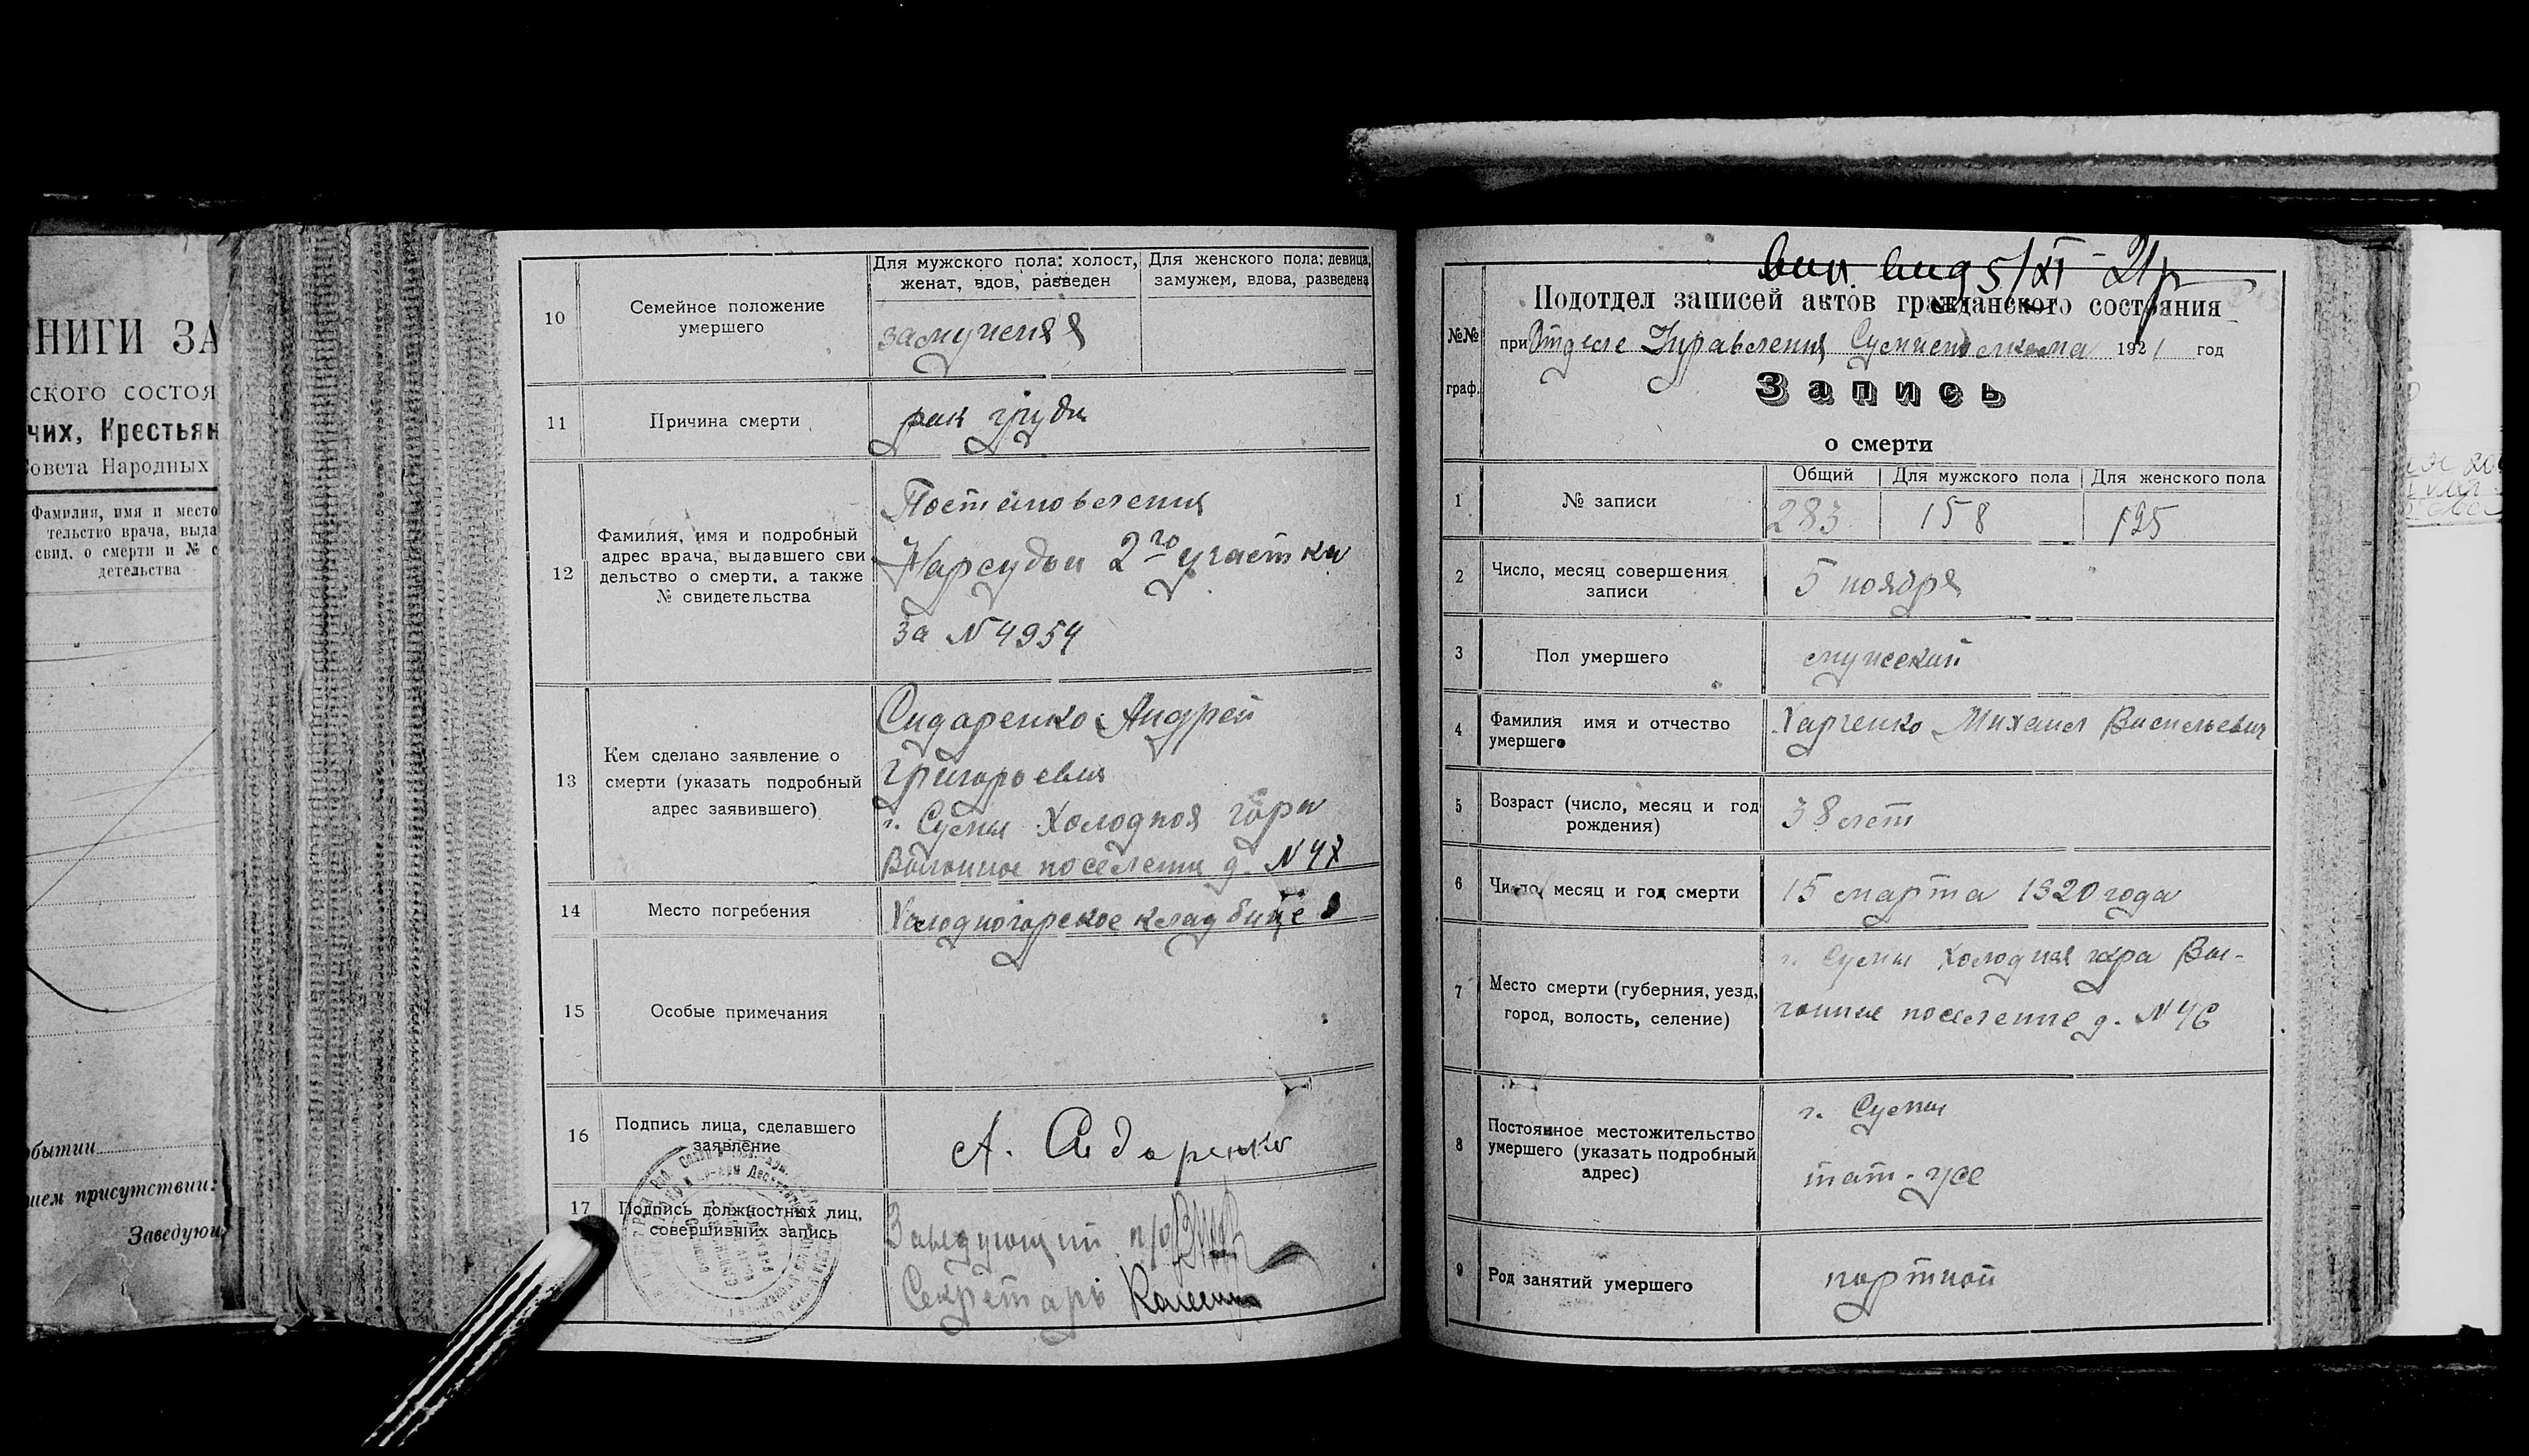 НИГИ ЗА
ского состоя
чих, Крестьян
овета Народных
Фамилия, имя и место
тельство врача, выда
свид. о смерти и № с
детельства
бытии
шем присутствии:
Заведующ
10
Семейное положение
умершего
Для мужского пола: холост,
женат, вдов, разведен
Для женского пола: девица,
замужем, вдова, разведена
замужняя
11
Причина смерти
рак груди
12
Фамилия, имя и подробный
адрес врача, выдавшего сви
дельство о смерти, а также
№ свидетельства
Постановления
Нарсудьи 2го участка
За N 4954
13
Кем сделано заявление о
смерти (указать подробный
адрес заявившего)
Сидаренко Андрей
Григорьевич
г. Сумы Холодная гора
поселение д. N 47
14
Место погребения
Холодногорское кладбище
15
Особые примечания
16
Подпись лица, сделавшего
заявление
А. Сидаренко
17
Подпись должностных лиц,
совершивших запись
Заведующий п/о
Секретарь
5/XI - 21 г
Подотдел записей актов гражданского состояния
№№
граф.
при Отделе Управления Сумисполкома 1921 год
Запись
о смерти
1
№ записи
Общий
Для мужского пола
Для женского пола
283
158
125
2
Число, месяц совершения
записи
5 ноября
3
Пол умершего
мужский
4
Фамилия имя и отчество
умершего
Харченко Михаил Васильевич
5
Возраст (число, месяц и год
рождения)
38 лет
6
Число, месяц и год смерти
15 марта 1920 года
7
Место смерти (губерния, уезд,
город, волость, селение)
г. Сумы Холодная гора Вы-
гонное поселение д. N 46
8
Постоянное местожительство
умершего (указать подробный
адрес)
г. Сумы
там-же
9
Род занятий умершего
портной